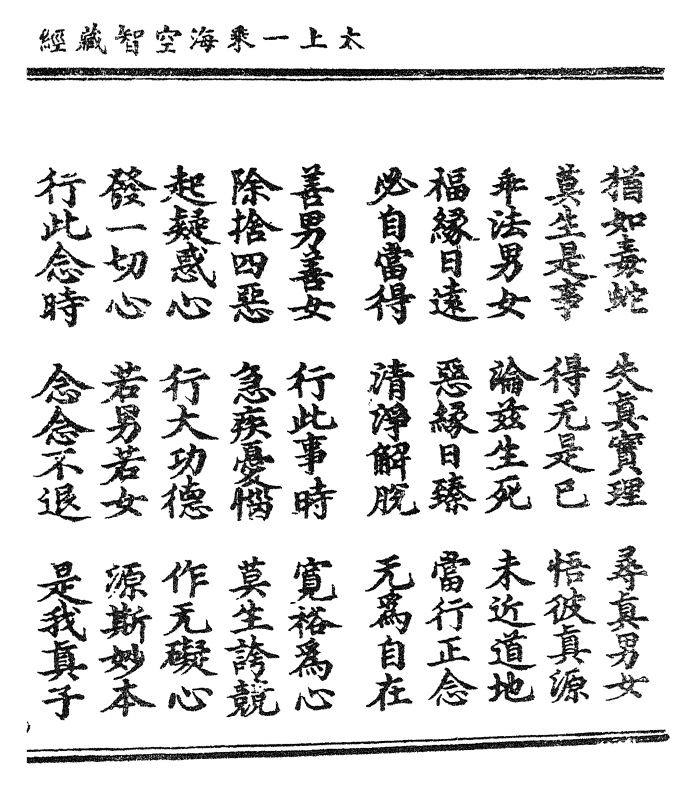 太上一乘海空智藏經
猶如毒蛇 失真實理 尋真男女
莫生是事 得无是已 悟彼真源
乖法男女 論茲生死 未近道地
福緣日遠 惡緣日臻 當行正念
必自當得 清淨解脫 无為自在
善男善女 行此事時 寬裕為心
除捨四惡 急疾憂惱 莫生誇競
起疑惑心 行大功德 作无礙心
發一切心 若男若女 源斯妙本
行此念時 念念不退 是我真子